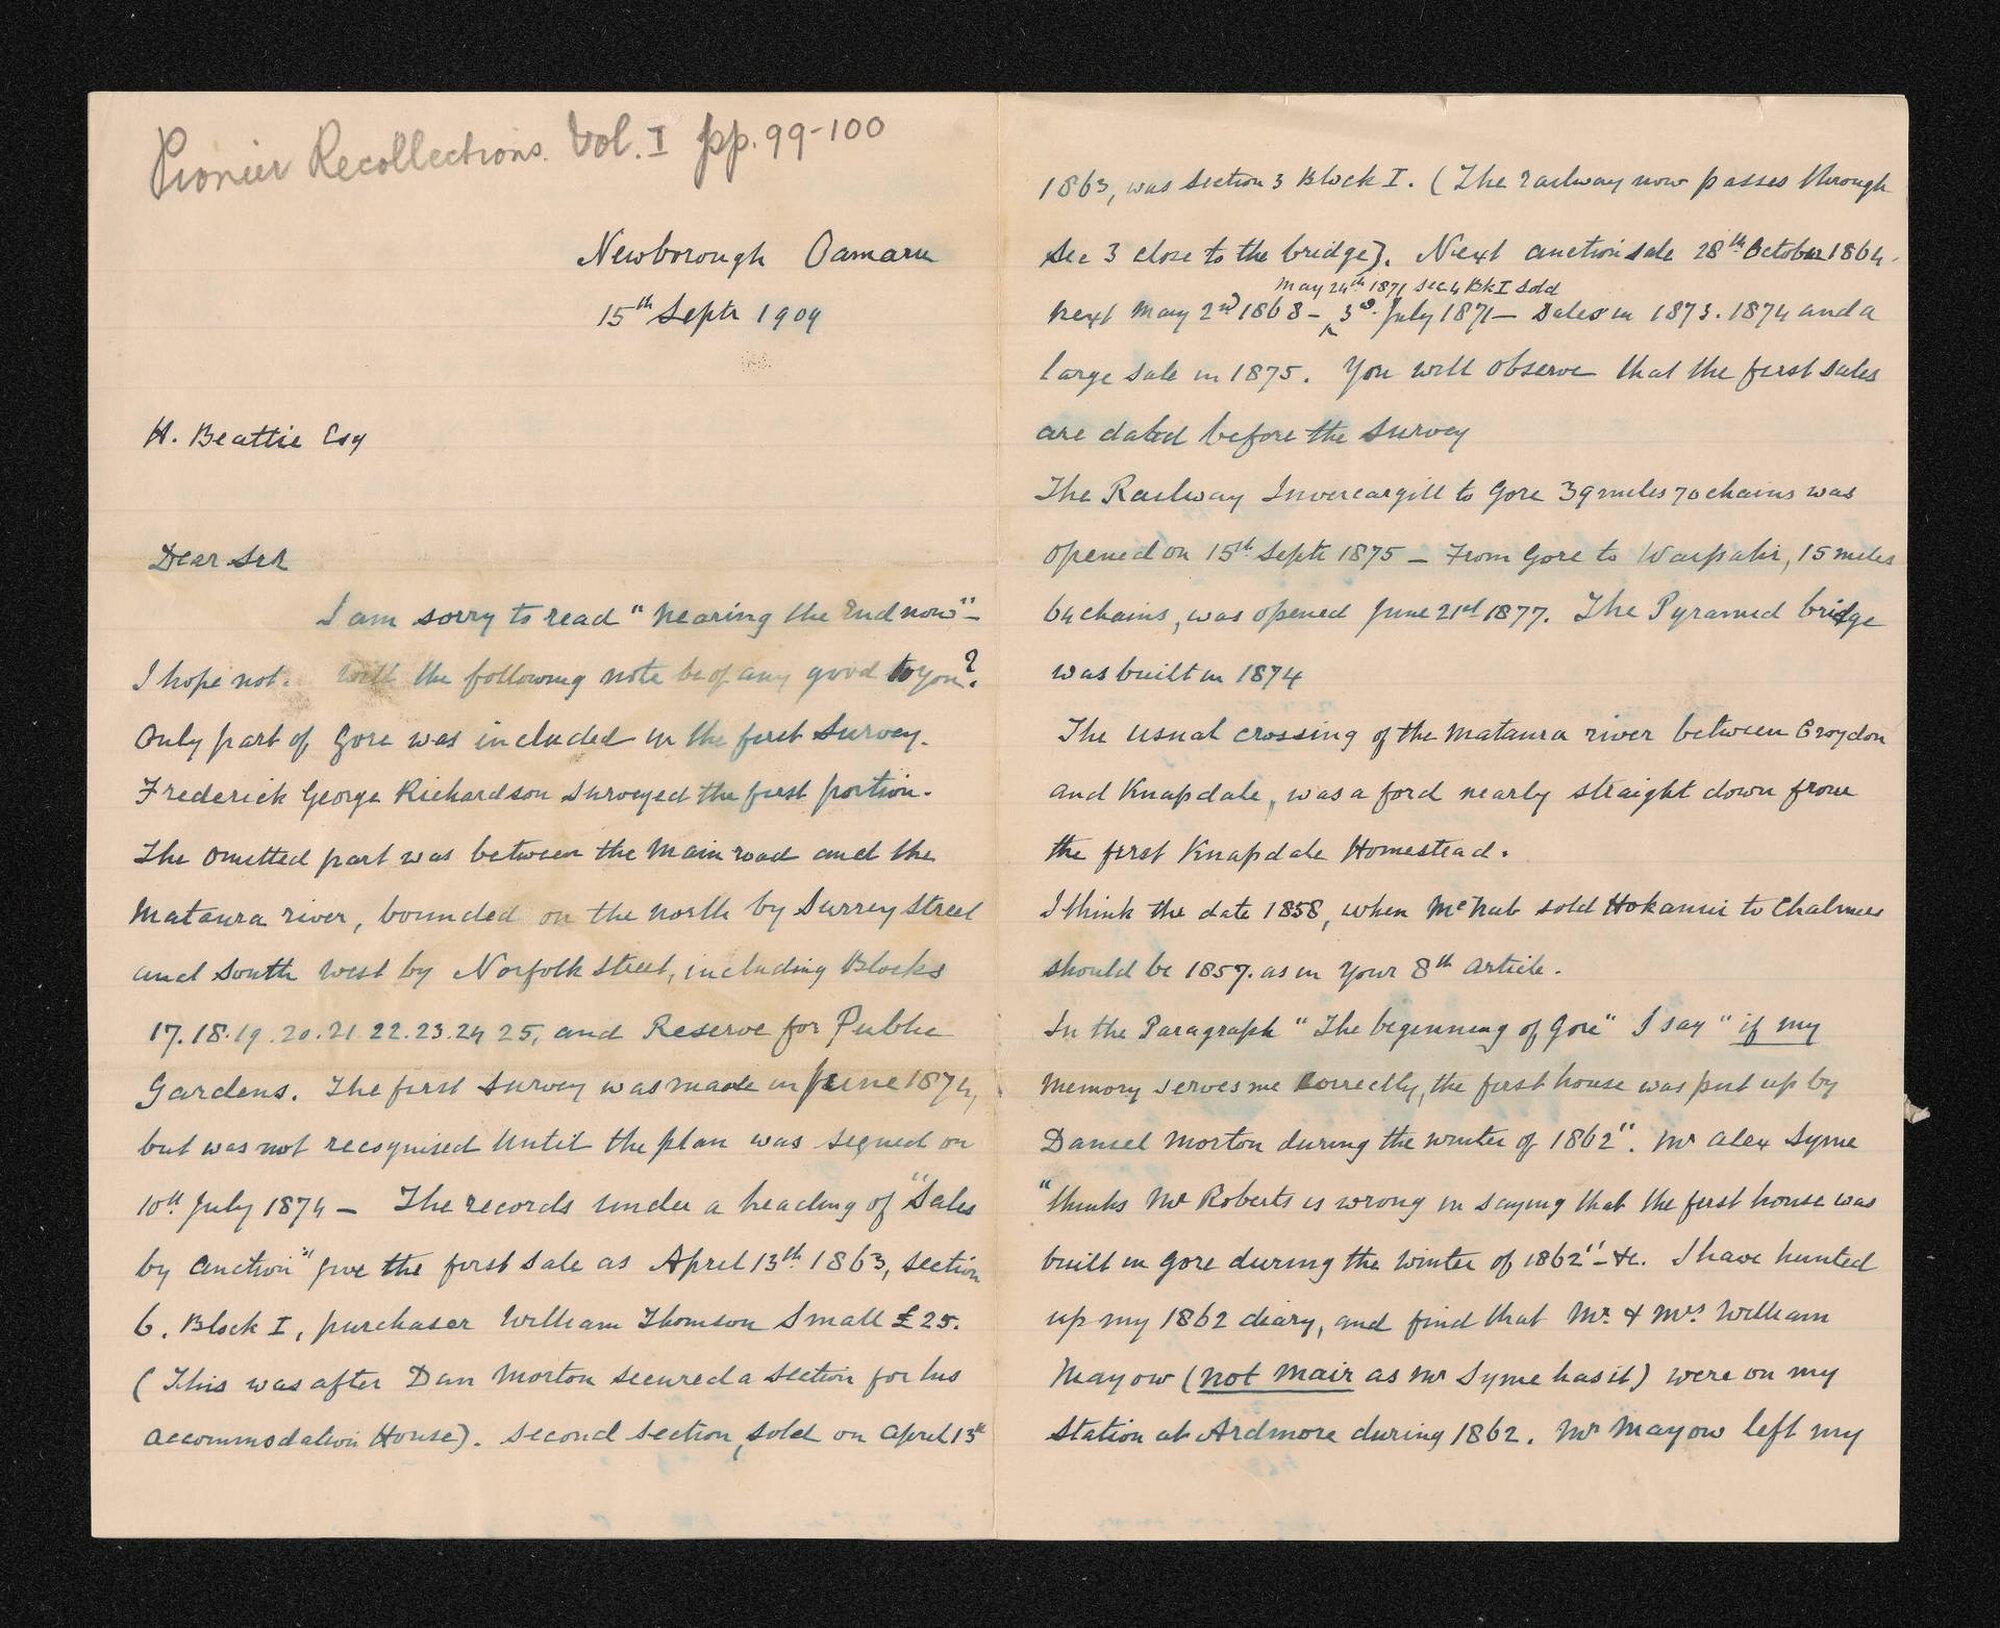 Pionier Recollections. Vol. I pp. 99-100
Newborough Oamaru
15th Septr 1909
H. Beattie Esq
Dear Sir
I am sorry to read "nearing the End now" —
I hope not. Will the following note be of any good to you?
Only part of Gore was included in the first Survey.
Frederick George Richardson Surveyed the first portion.
The omitted part was between the Main road and the
Mataura river, bounded on the north by Surrey Street
and South West by Norfolk Street, including Blocks
17. 18. 19. 20. 21 22. 23. 24 25, and Reserve for Public
Gardens. The first Survey was made in June 1874,
but was not recognised Until the plan was signed on
10th July 1874 — The records under a heading of "Sales
by Auction" give the first Sale as April 13th 1863, Section
6. Block I, purchaser William Thomson Small £25.
(This was after Dan Morton secured a section for his
Accommodation House). Second section, sold on April 13th
1863, was Section 3 Block I. (The railway now passes through
Sec 3 close to the bridge). Next auction sale 28th October 1864.
May 24th 1871 Sec 4 Bk I Sold
next May 2nd 1868 — 3d. July 1871 — Sales in 1873. 1874 and a
large sale in 1875. You will observe that the first sales
are dated before the Survey
The Railway Invercargill to Gore 39 miles 70 chains was
opened on 15th Septr 1875 — From Gore to Waipahi, 15 miles
64 chains, was opened June 21st 1877. The Pyramid bridge
was built in 1874
The usual crossing of the Mataura river between Croydon
and Knapdale, was a ford nearly straight down from
the first Knapdale Homestead.
I think the date 1858, when McNab sold Hokanui to Chalmers
should be 1857. as in your 8th Article.
In the Paragraph "The beginning of Gore" I say "if my
memory serves me correctly, the first house was put up by
Daniel Morton during the winter of 1862". Mr Alex Syme
"thinks Mr Roberts is wrong in saying that the first house was
built in Gore during the winter of 1862" — &c. I have hunted
up my 1862 diary, and find that Mr. & Mrs William
Mayow (not Mair as Mr Syme has it) were on my
station at Ardmore during 1862. Mr Mayow left my